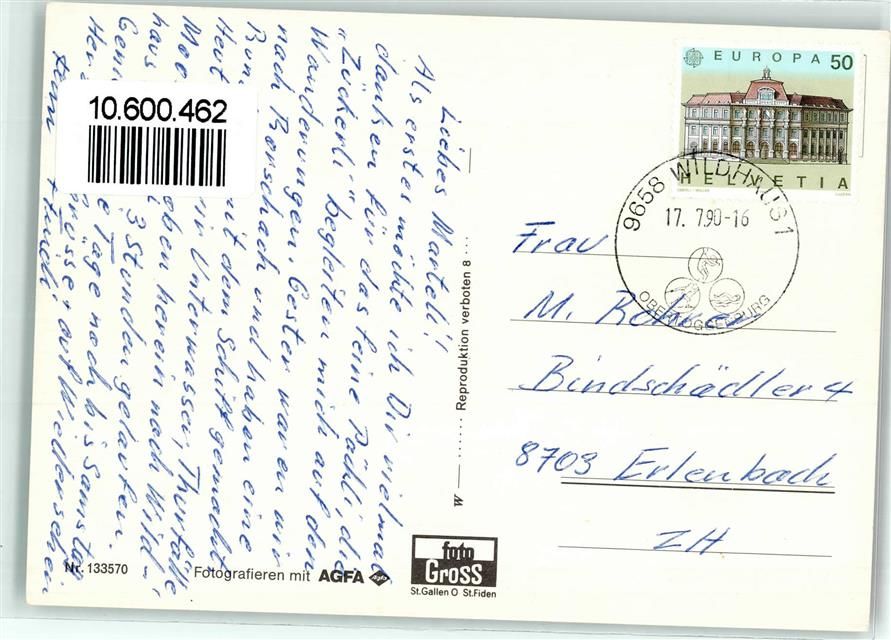 Liebes Marteli!
Als erstes möchte ich Dir vielmal
danken für das feine Päckli, die
"Zückerli" begleiten mich auf den
Wanderungen. Gester waren wir
nach Rorschach und haben eine
mit dem Schiff gemacht
Heut Unterwasser, Thurfälle
herein nach Wild-
haus 3 Stunden gelaufen.
Tage noch bis Samstag
Grüsse + auf Wiedersehen
10.600.462
Nr. 133570
Fotografieren mit AGFA
foto
GROSS
St.Gallen O St.Fiden
W
Reproduktion verboten 8
EUROPA 50
HELVETIA
9658 WILDHAUS 1
17. 7.90-16
OBERTOGGENBURG
Frau
M.
Bindschädler 4
8703 Erlenbach
ZH